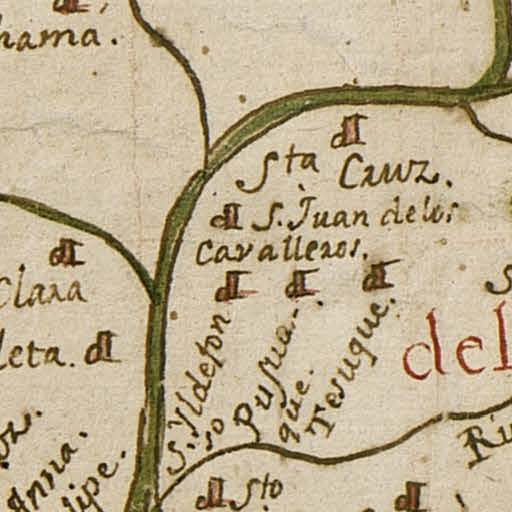 hama.
Sta Cruz.
S. Juan de los
Cavalleros.
Clara
leta.
S. Yldefon
so
Pujua..
que.
Tesuque.
del
Anna.
lipe.
Sto